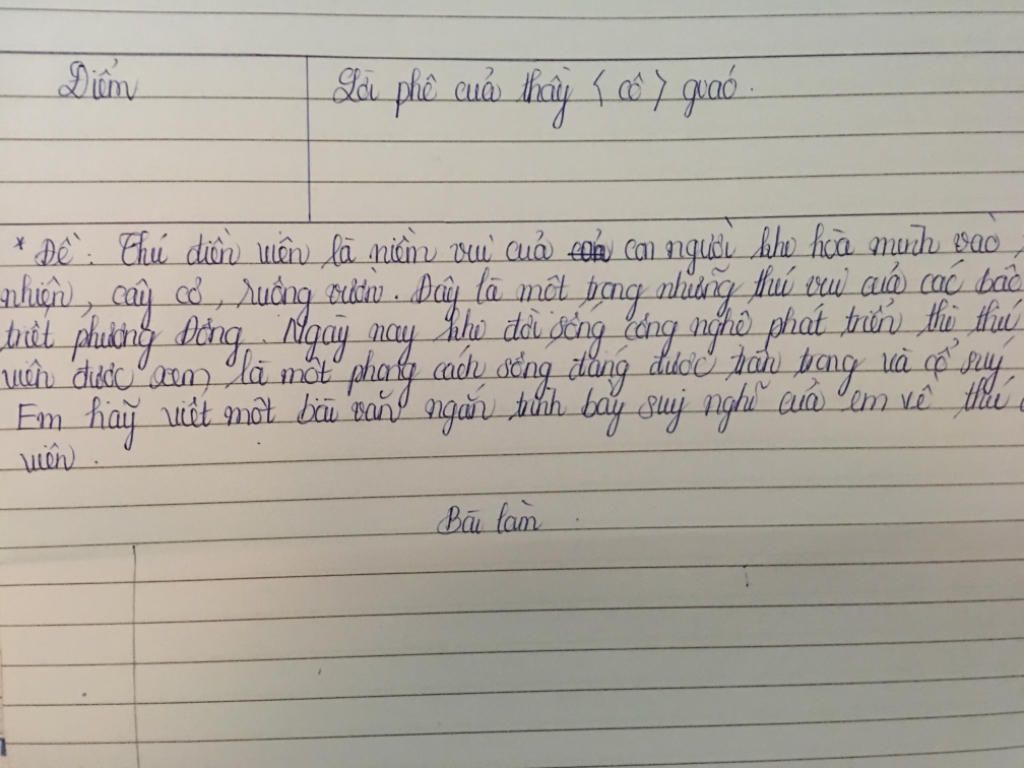 Điểm
Lời phê của thầy < cô > giáo.
* Đề: Thú điền viên là niềm vui của con người khi hòa mình vào
nhiên, cây cỏ, ruộng vườn. Đây là một trong những thú vui của các bậc
triết phương Đông. Ngày nay khi đời sống công nghệ phát triển thì thú
viên được xem là một phong cách sống đáng được trân trọng và cổ suý
Em hãy viết một bài văn ngắn trình bày suy nghĩ của em về thú
viên.
Bài làm